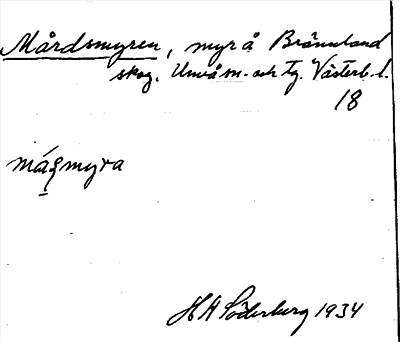 Mårdsmyren, myr å Brännland
skog. Umeå sn. och tg. Västerb. l.
18
mási̮myra
H A Söderberg 1934